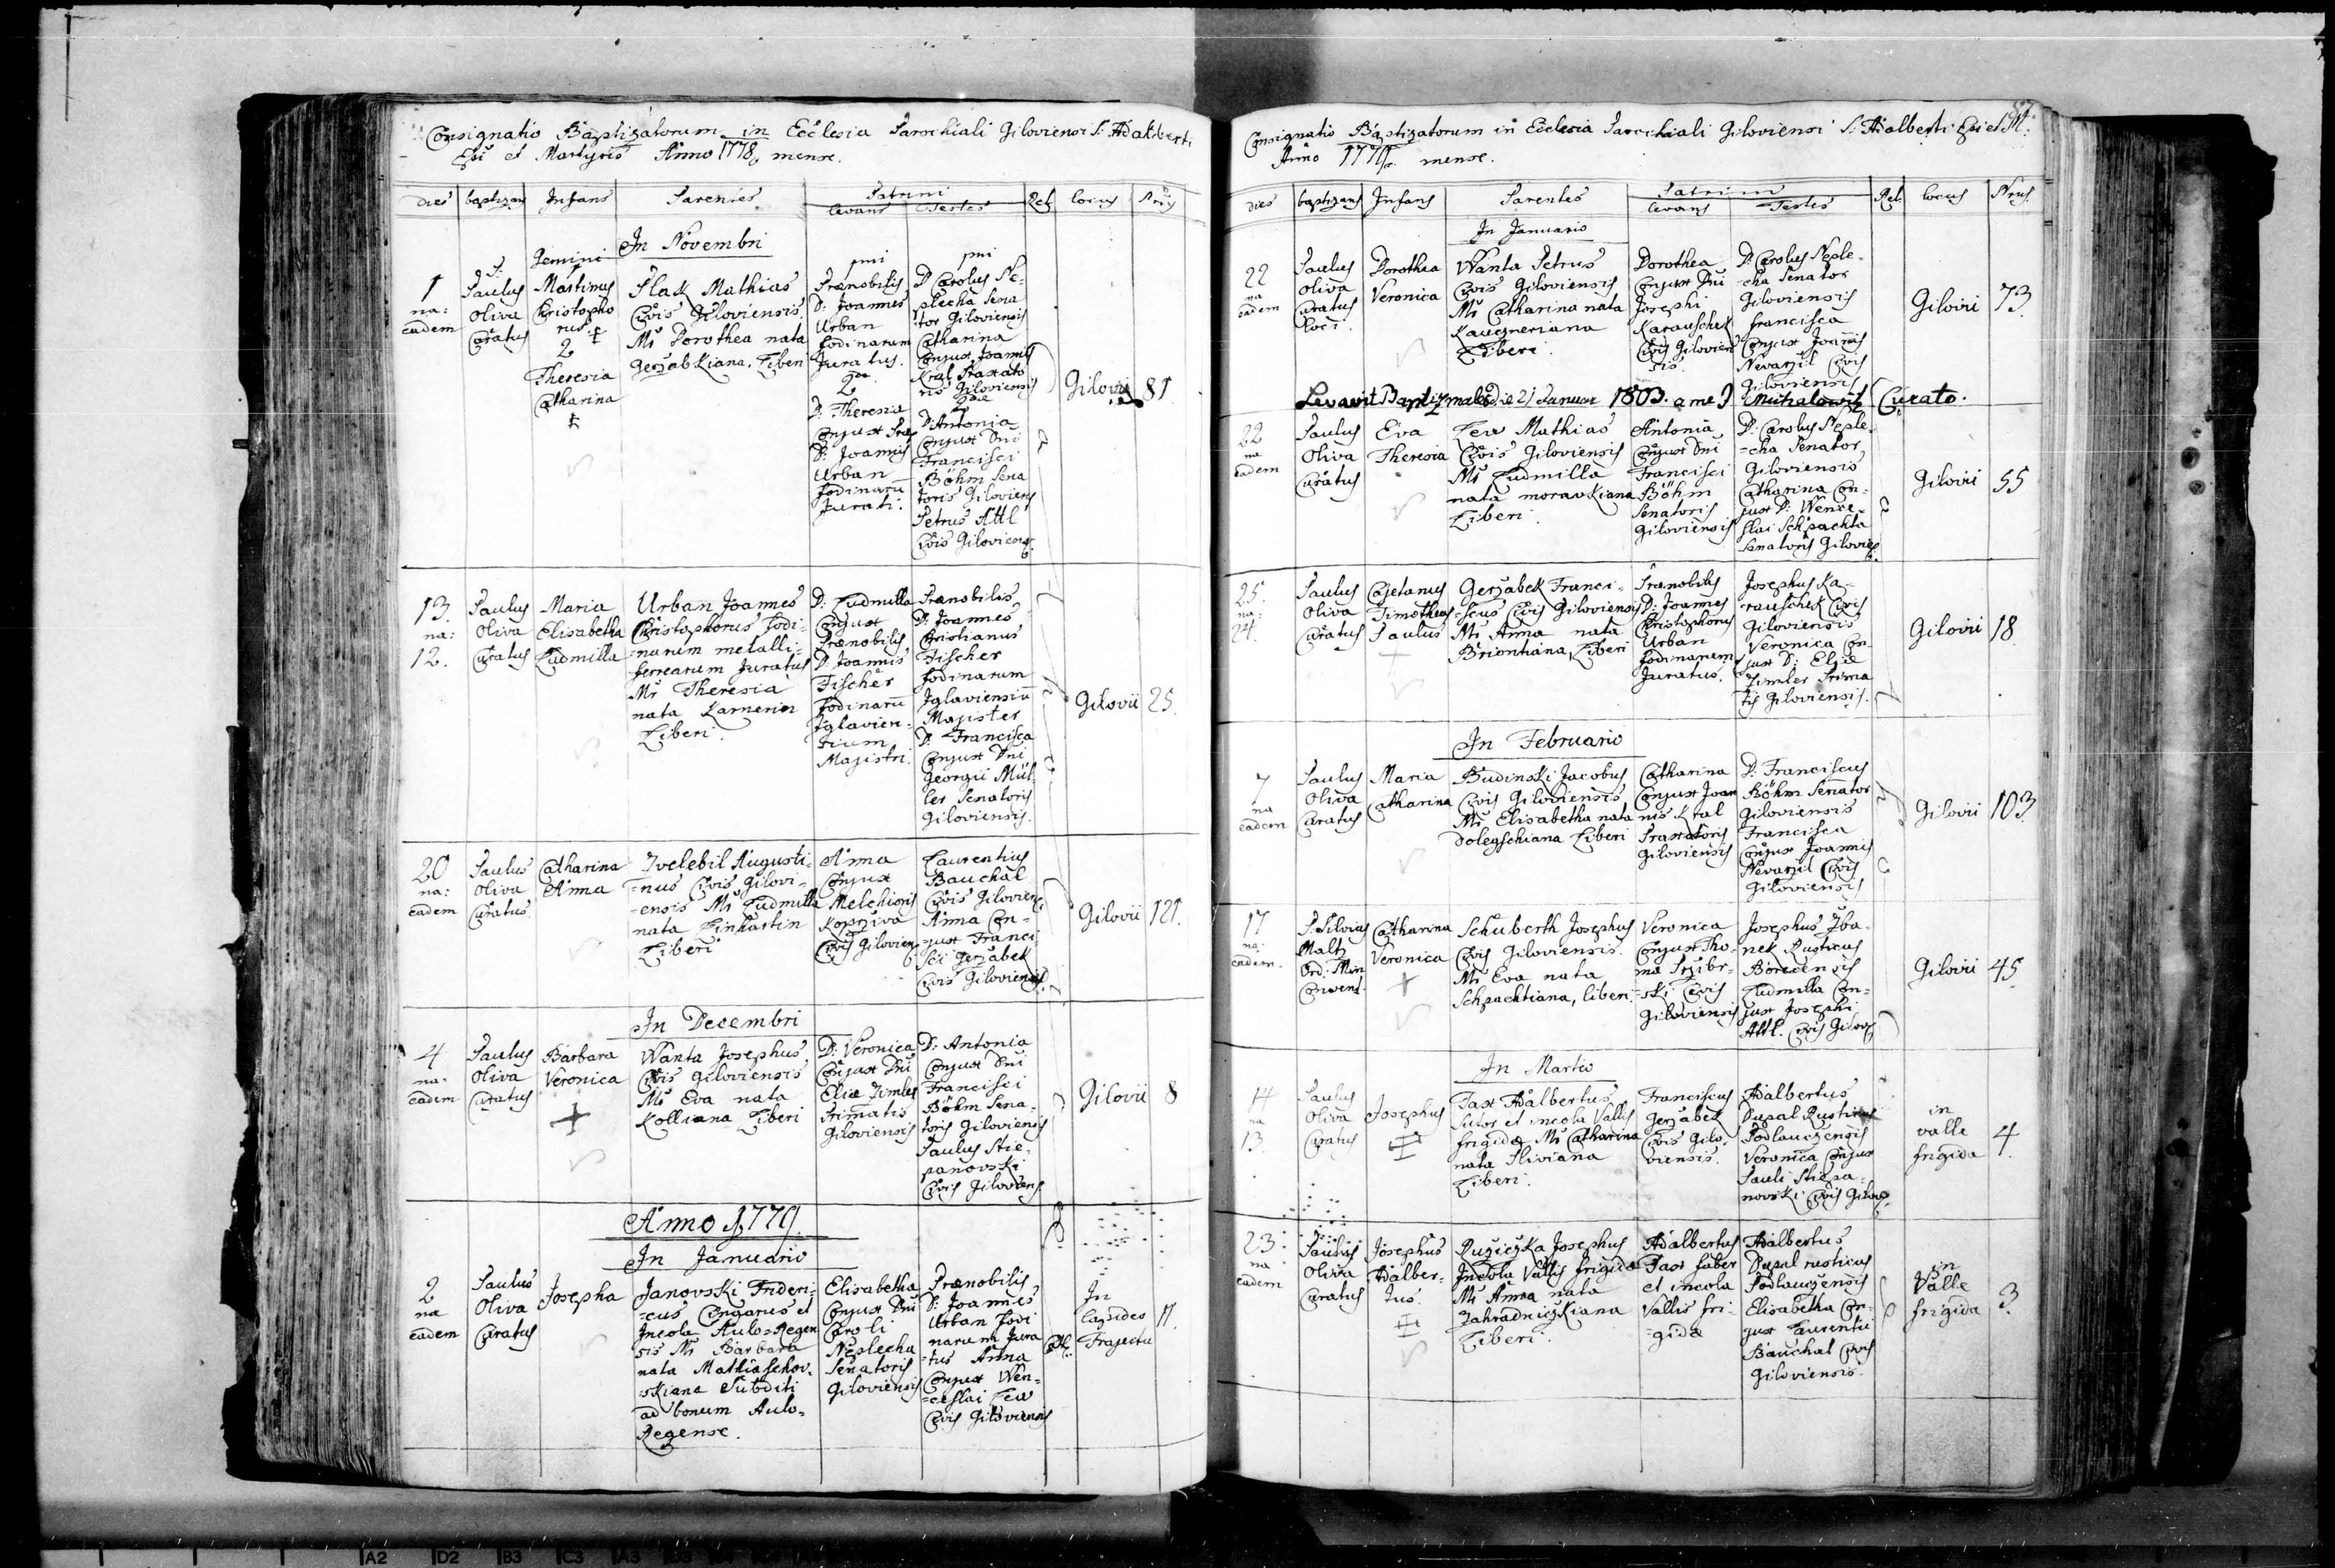 Consignatio Baptizatorum in Ecclesia Parochiali Giloviensi S: Adalberti
Epi et Martyris Anno 1778, mense.
dies baptizans Infans Parentes Patrini levans Testes Rel locus Nrus
In Novembri
1
na:
eadem
P:
Paulus
Oliva
Curatus
Gemini
Martinus
Christopho
rus. ‡
2
Theresia
Catharina
‡
Flak Mathias
Civis Giloviensis.
Mr Dorothea nata
Gerzabkiana, Liberi
pmi
Prænobilis
D: Joannes
Urban
fodinarum
Juratus.
2æ
D: Theresia
Conjux Præ
D: Joannis
Urban
fodinarū
Jurati.
pmi
D: Carolus Ne-
plecha Sena
tor Giloviensis
Catharina
Conjux Joannis
Kral Praxato
ris Giloviensis
2dæ
D: Antonia
Conjux Dni
Francisci
Böhm Sena
toris Giloviens
Petrus Attl
Civis Giloviens
Gilovii 81
13.
na:
12.
Paulus
Oliva
Curatus
Maria
Elisabetha
Ludmilla
Urban Joannes
Christophorus fodi-
=narum metalli-
ferrearum Juratus
Mr Theresia
nata Kamenin
Liberi.
D: Ludmilla
Conjux
Prænobilis
D: Joannis
Fischer
fodinarū
Iglavien-
sium
Magistri.
Prænobilis
D: Joannes
Christianus
Fischer
fodinarum
Iglaviensiū
Magister
D: Francisca
Conjux Dni
Georgii Mül
ler Senatoris
Giloviensis.
Gilovii 25.
20
na:
eadem
Paulus
Oliva
Curatus.
Catharina
Anna
Zvelebil Augusti-
=nus Civis Gilovi-
-ensis Mr Ludmilla
nata Linhartin
Liberi
Anna
Conjux
Melchioris
Kopziva
Civis Giloviens
Laurentius
Bauchal
Civis Giloviens
Anna Con-
-jux Franci
sci Gerzabek
Civis Giloviensis
Gilovii 121.
In Decembri
4
na:
eadem
Paulus
Oliva
Curatus
Barbara
Veronica
+
Wanta Josephus,
Civis Giloviensis
Mr Eva nata
Kolliana Liberi
D: Veronica
Conjux Dni
Eliæ Zimler
Primatis
Giloviensis
D: Antonia
Conjux Dni
Francisci
Böhm Sena-
toris Giloviensis
Paulus Stie-
panovski
Civis Giloviens
Gilovii 8
Anno 1779.
In Januario
2
na
eadem
Paulus
Oliva
Curatus
Josepha
Janovski Frideri-
=cus Congarus et
Incola Aulo=Regen
sis Mr Barbara
nata Mathiaschov-
skiana Subditi
ad bonum Aulo-
Regense.
Elisabetha
Conjux Dni
Caroli
Neplecha
Senatoris
Giloviensis
Prænobilis
D: Joannes
Urban fodi
narum Jura
=tus Anna
Conjux Wen-
=ceslai Lew
Civis Giloviensis
In
lapideo 11.
Trajectu
87
Consignatio Baptizatorum in Ecclesia Parochiali Giloviensi S: Adalberti Epi et M:
Anno 1779. mense.
dies baptizans Infans Parentes Patrini levans Testes Rel. locus Nrus
In Januario
22
na
eadem
Paulus
Oliva
Curatus
loci.
Dorothea
Veronica
Wanta Petrus
Civis Giloviensis
Mr Catharina nata
Kauczneriana
Liberi.
Dorothea
Conjux Dni
Josephi
Karauschek
Civis Gilovien
sis.
D: Carolus Neple-
-cha Senator
Giloviensis
Francisca
Conjux Joannis
Nevarzil Civis
Giloviensis
Gilovii 73.
Levavit Baptizmales die 21 Januar 1803. a me J Michalowitz Curato.
22
na
eadem
Paulus
Oliva
Curatus
Eva
Theresia
Lew Mathias
Civis Giloviensis
Mr Ludmilla
nata moravkiana
Liberi.
Antonia
Conjux Dni
Francisci
Böhm
Senatoris
Giloviensis
D: Carolus Neple-
=cha Senator,
Giloviensis
Catharina Con-
jux D: Wence-
slai Schpachta
Senatoris Gilovien
Gilovii 55
25.
na:
24.
Paulus
Oliva
Curatus
Cajetanus
Timotheus
Paulus
Gerzabek Franci-
=scus Civis Giloviensis
Mr Anna nata
Brionhana, Liberi
Prænobilis
D: Joannes
Christophorus
Urban
fodinarum
Juratus.
Josephus Ka-
-rauschek Civis
Giloviensis
Veronica Con
jux D: Eliæ
Zimler Prima
tis Giloviensis.
Gilovii 18.
In Februario
7
na
eadem
Paulus
Oliva
Curatus
Maria
Catharina
Budinski Jacobus
Civis Giloviensis
Mr Elisabetha nata
Dolegschiana Liberi
Catharina
Conjux Joan
nis Kral
Praxatoris
Giloviensis
D: Franciscus
Böhm Senator
Giloviensis
Francisca
Conjux Joannis
Nevarzil Civis
Giloviensis
Gilovii 103
17
na:
eadem.
P. Silvius
Maltz
Ord: Min
Convent.
Catharina
Veronica
+
Schuberth Josephus
Civis Giloviensis.
Mr Eva nata
Schpachtiana, liberi.
Veronica
Conjux Tho-
mæ Przibr-
=ski Civis
Giloviensis
Josephus Zba-
nek Rusticus
Boretensis
Ludmilla Con-
jux Josephi
Attl. Civis Gilov
Gilovii 45
In Martio
14
na
13.
Paulus
Oliva
Curatus
Josephus
‡
Fax Adalbertus
Sutor et incola Vallis
frigidæ Mr Catharina
nata Sliviana
Liberi.
Franciscus
Gerzabek
Civis Gilo-
viensis.
Adalbertus
Dupal Rusticus
Podlauczensis
Veronica Conjux
Pauli Stiepa-
novski Civis Gilov
in
valle
frigida 4.
23.
na
eadem
Paulus
Oliva
Curatus
Josephus
Adalber-
tus.
‡
Ruziczka Josephus
Incola Vallis frigidæ
Mr Anna nata
Zahradniczkiana
Liberi.
Adalbertus
Fax faber
et incola
Vallis fri-
=gidæ
Adalbertus
Dupal rusticus
Podlauczensis
Elisabetha Con-
jux Laurentii
Bauchal Civis
Giloviensis.
in
Valle
frigida 3.